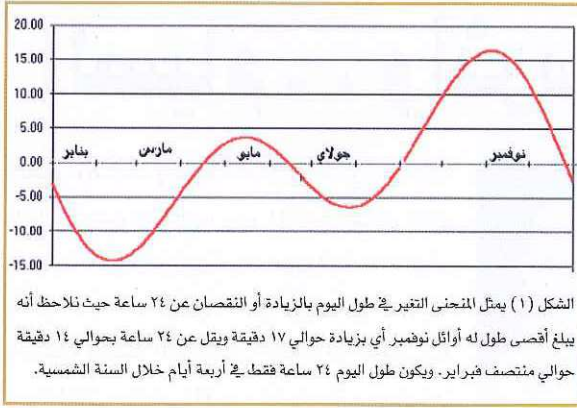 20.00
15.00
10.00
5.00
0.00
-5.00
-10.00
-15.00
يناير مارس مايو جولاي نوفمبر
الشكل (١) يمثل المنحنى التغير في طول اليوم بالزيادة أو النقصان عن ٢٤ ساعة حيث نلاحظ أنه
يبلغ أقصى طول له أوائل نوفمبر أي بزيادة حوالي ١٧ دقيقة ويقل عن ٢٤ ساعة بحوالي ١٤ دقيقة
حوالي منتصف فبراير. ويكون طول اليوم ٢٤ ساعة فقط في أربعة أيام خلال السنة الشمسية.